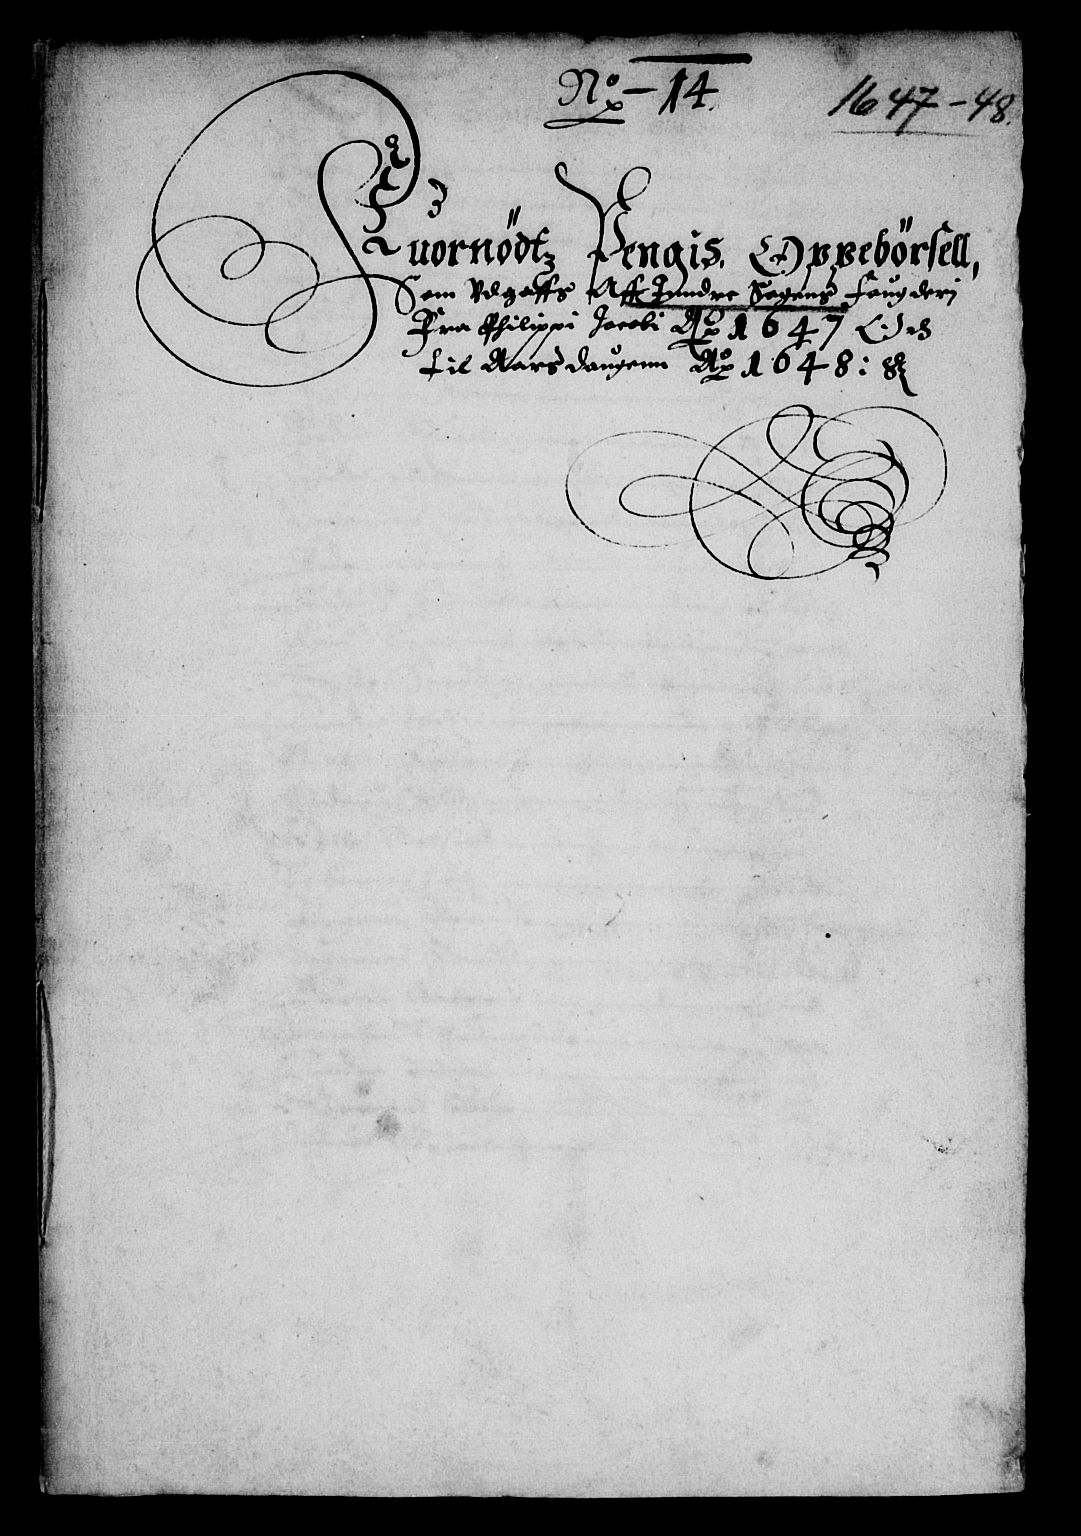 No - 14.
1647-48.
Quornödtz Pengis Oppebörsell,
Som Udgaffs Aff Jndre Sogens Fougderj
Fra Philippi Jacobi Ao 1647 Och
til Aarsdaugenn Ao 1648: